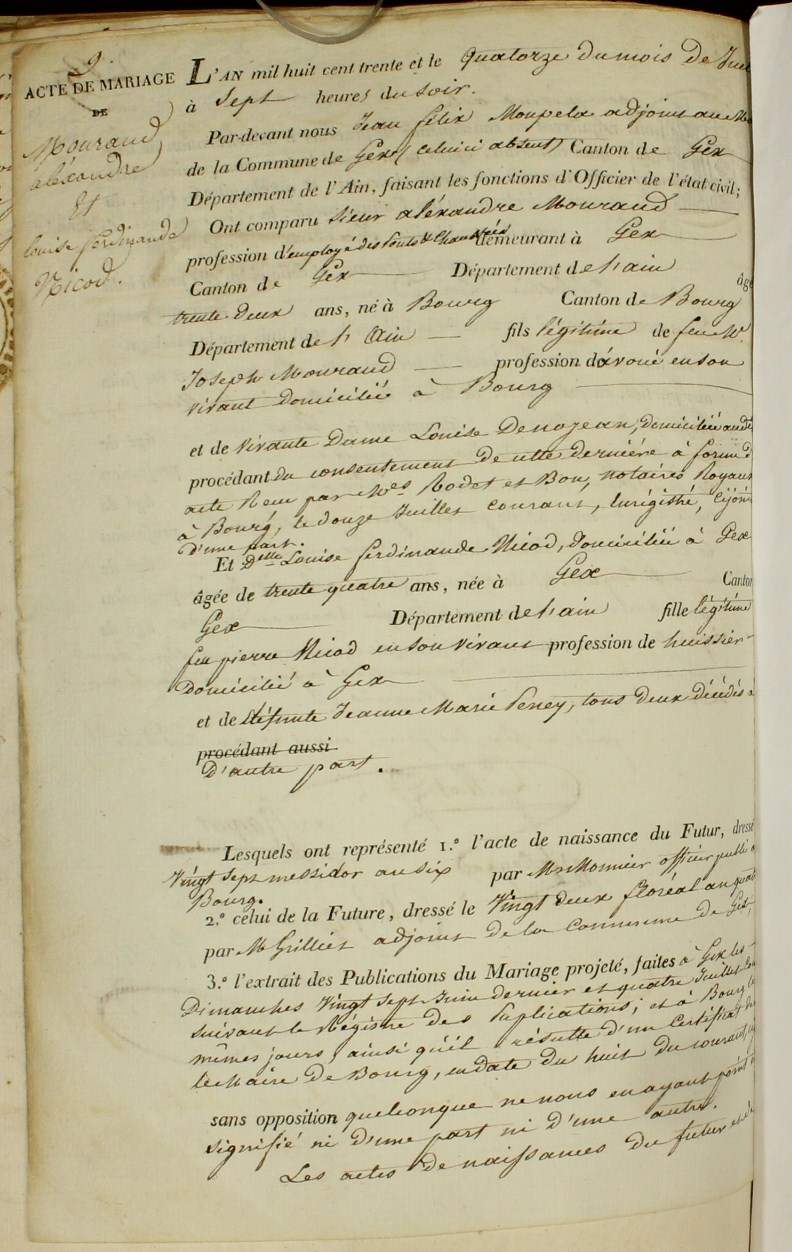 9.
ACTE DE MARIAGE
DE
Mouraud
aléxandre
Et
Louise ferdinande
Nicod.
L'AN mil huit cent trente et le quatorze du mois de Juil
à Sept heures du soir.
Par-devant nous Jean félix Moupela adjoint au M
de la Commune de Gex (celuici absent) Canton de Gex
Département de l'Ain, faisant les fonctions d'Officier de l'état civil;
Ont comparu Sieur aléxandre Mouraud
profession d'employé des Ponts & Chaussées demeurant à Gex
Canton de Gex Département de l'ain âgé
trente-deux ans, né à Bourg Canton de Bourg
Département de l'Ain fils légitime de feu Mr.
Joseph Mouraud profession d'avoué en son
vivant domicilié à Bourg
et de vivante Dame Louise Denojean, domiciliée audit
procédant du consentement de cette dernière à forme d
acte Reçu par Mes. Rodet et Bon, notaires Royaux
à Bourg, le douze Juillet courant, Enrégistré, Cijoint
D'une part.
Et Delle Louise ferdinande Nicod, domiciliée à Gex
âgée de trente quatre ans, née à Gex Canton
Gex Département de l'ain fille légitime
feu pierre Nicod en son vivant profession de huissier
Domicilié à Gex
et de défunte Jeanne Marie Peney, tous deux décédés à
procédant aussi
D'autre part.
Lesquels ont représenté 1.º l'acte de naissance du Futur, dressé
Vingt sept messidor an six par Mr Monnier officier public
Bourg.
2.º celui de la Future, dressé le Vingt deux floréal an quat
par M Grilliet adjoint de la Commune de Gex,
3.º l'extrait des Publications du Mariage projeté, faites à Gex les
Dimanches Vingt sept Juin dernier et quatre Juillet
suivant le Régistre des Publications; et à Bourg
mêmes jours, ainsi qu'il résulte d'un Certificat
le Maire de Bourg, en date du huit du courant,
sans opposition quelconque ne nous en ayant point
signifié ni d'une part ni d'une autre.
Les actes de naissances du futur et